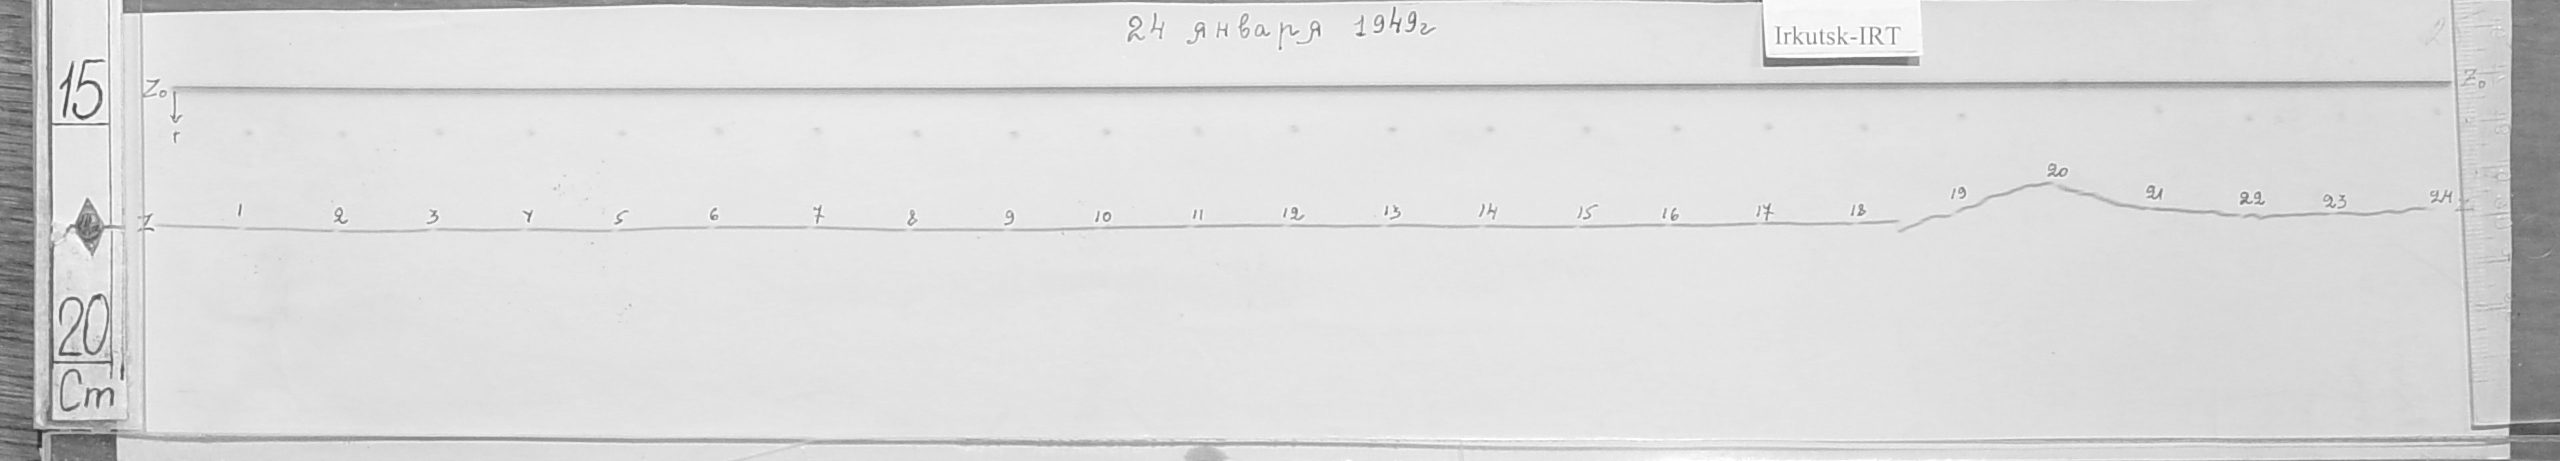 24 января 1949г
Irkutsk-IRT
15
Z₀ Z₀
г
Z 1 2 3 4 5 6 7 8 9 10 11 12 13 14 15 16 17 18 19 20 21 22 23 24 Z
20
Cm